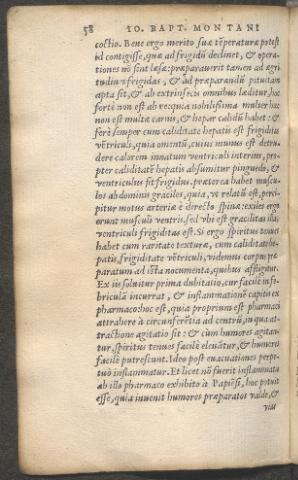 58 IO. BAPT. MONTANI
coctio. Bene ergo merito suæ tẽperaturæ potest
id contigisse, quæ ad frigidũ declinet, & opera-
tiones nõ sint læsæ; præparauerit tamen ad ægri
tudinẽ frigidas, & ad præparandũ pituitam
apta sit, & ab extrinsecis omnibus læditur, hoc
forte non est ab re, quia nobilissima mulier hæc
non est multæ carnis, & hepar calidũ habet: &
ferè semper cum caliditate hepatis est frigidius
vẽtriculi, quia omentũ, cuius munus est detru-
dere calorem innatum ventriculi interim, pro-
pter caliditatẽ hepatis absumitur pinguedo, &
ventriculus fit frigidus. præterea habet muscu-
los abdominis graciles, quia, vt relatũ est, perci-
pitur motus arteriæ è directo spinæ: exiles ergo
erunt musculi ventris, sed vbi est gracilitas ibi,
ventriculi frigiditas est. Si ergo spiritus tenues
habet cum raritate texturæ, cum caliditate he-
patis, frigiditate vẽtriculi, videmus corpus præ
paratum ad ista nocumenta, quibus affligitur.
Ex iis soluitur prima dubitatio, cur facilè in fe-
briculã incurrat, & inflammationẽ capitis ex
pharmaco: hoc est, quia proprium est pharmaci
attrahere à circunferẽtia ad centrũ, in qua at-
tractione agitatio fit: & cùm humores agitan-
tur, spiritus tenues facilè eleuãtur, & humores
facilè putrescunt. Ideo post euacuationes perpe-
tuò inflammatur. Et licet nõ fuerit inflammata
ab illo pharmaco exhibito à Papiẽsi, hoc potuit
esse, quia inuenit humores præparatos valde, &